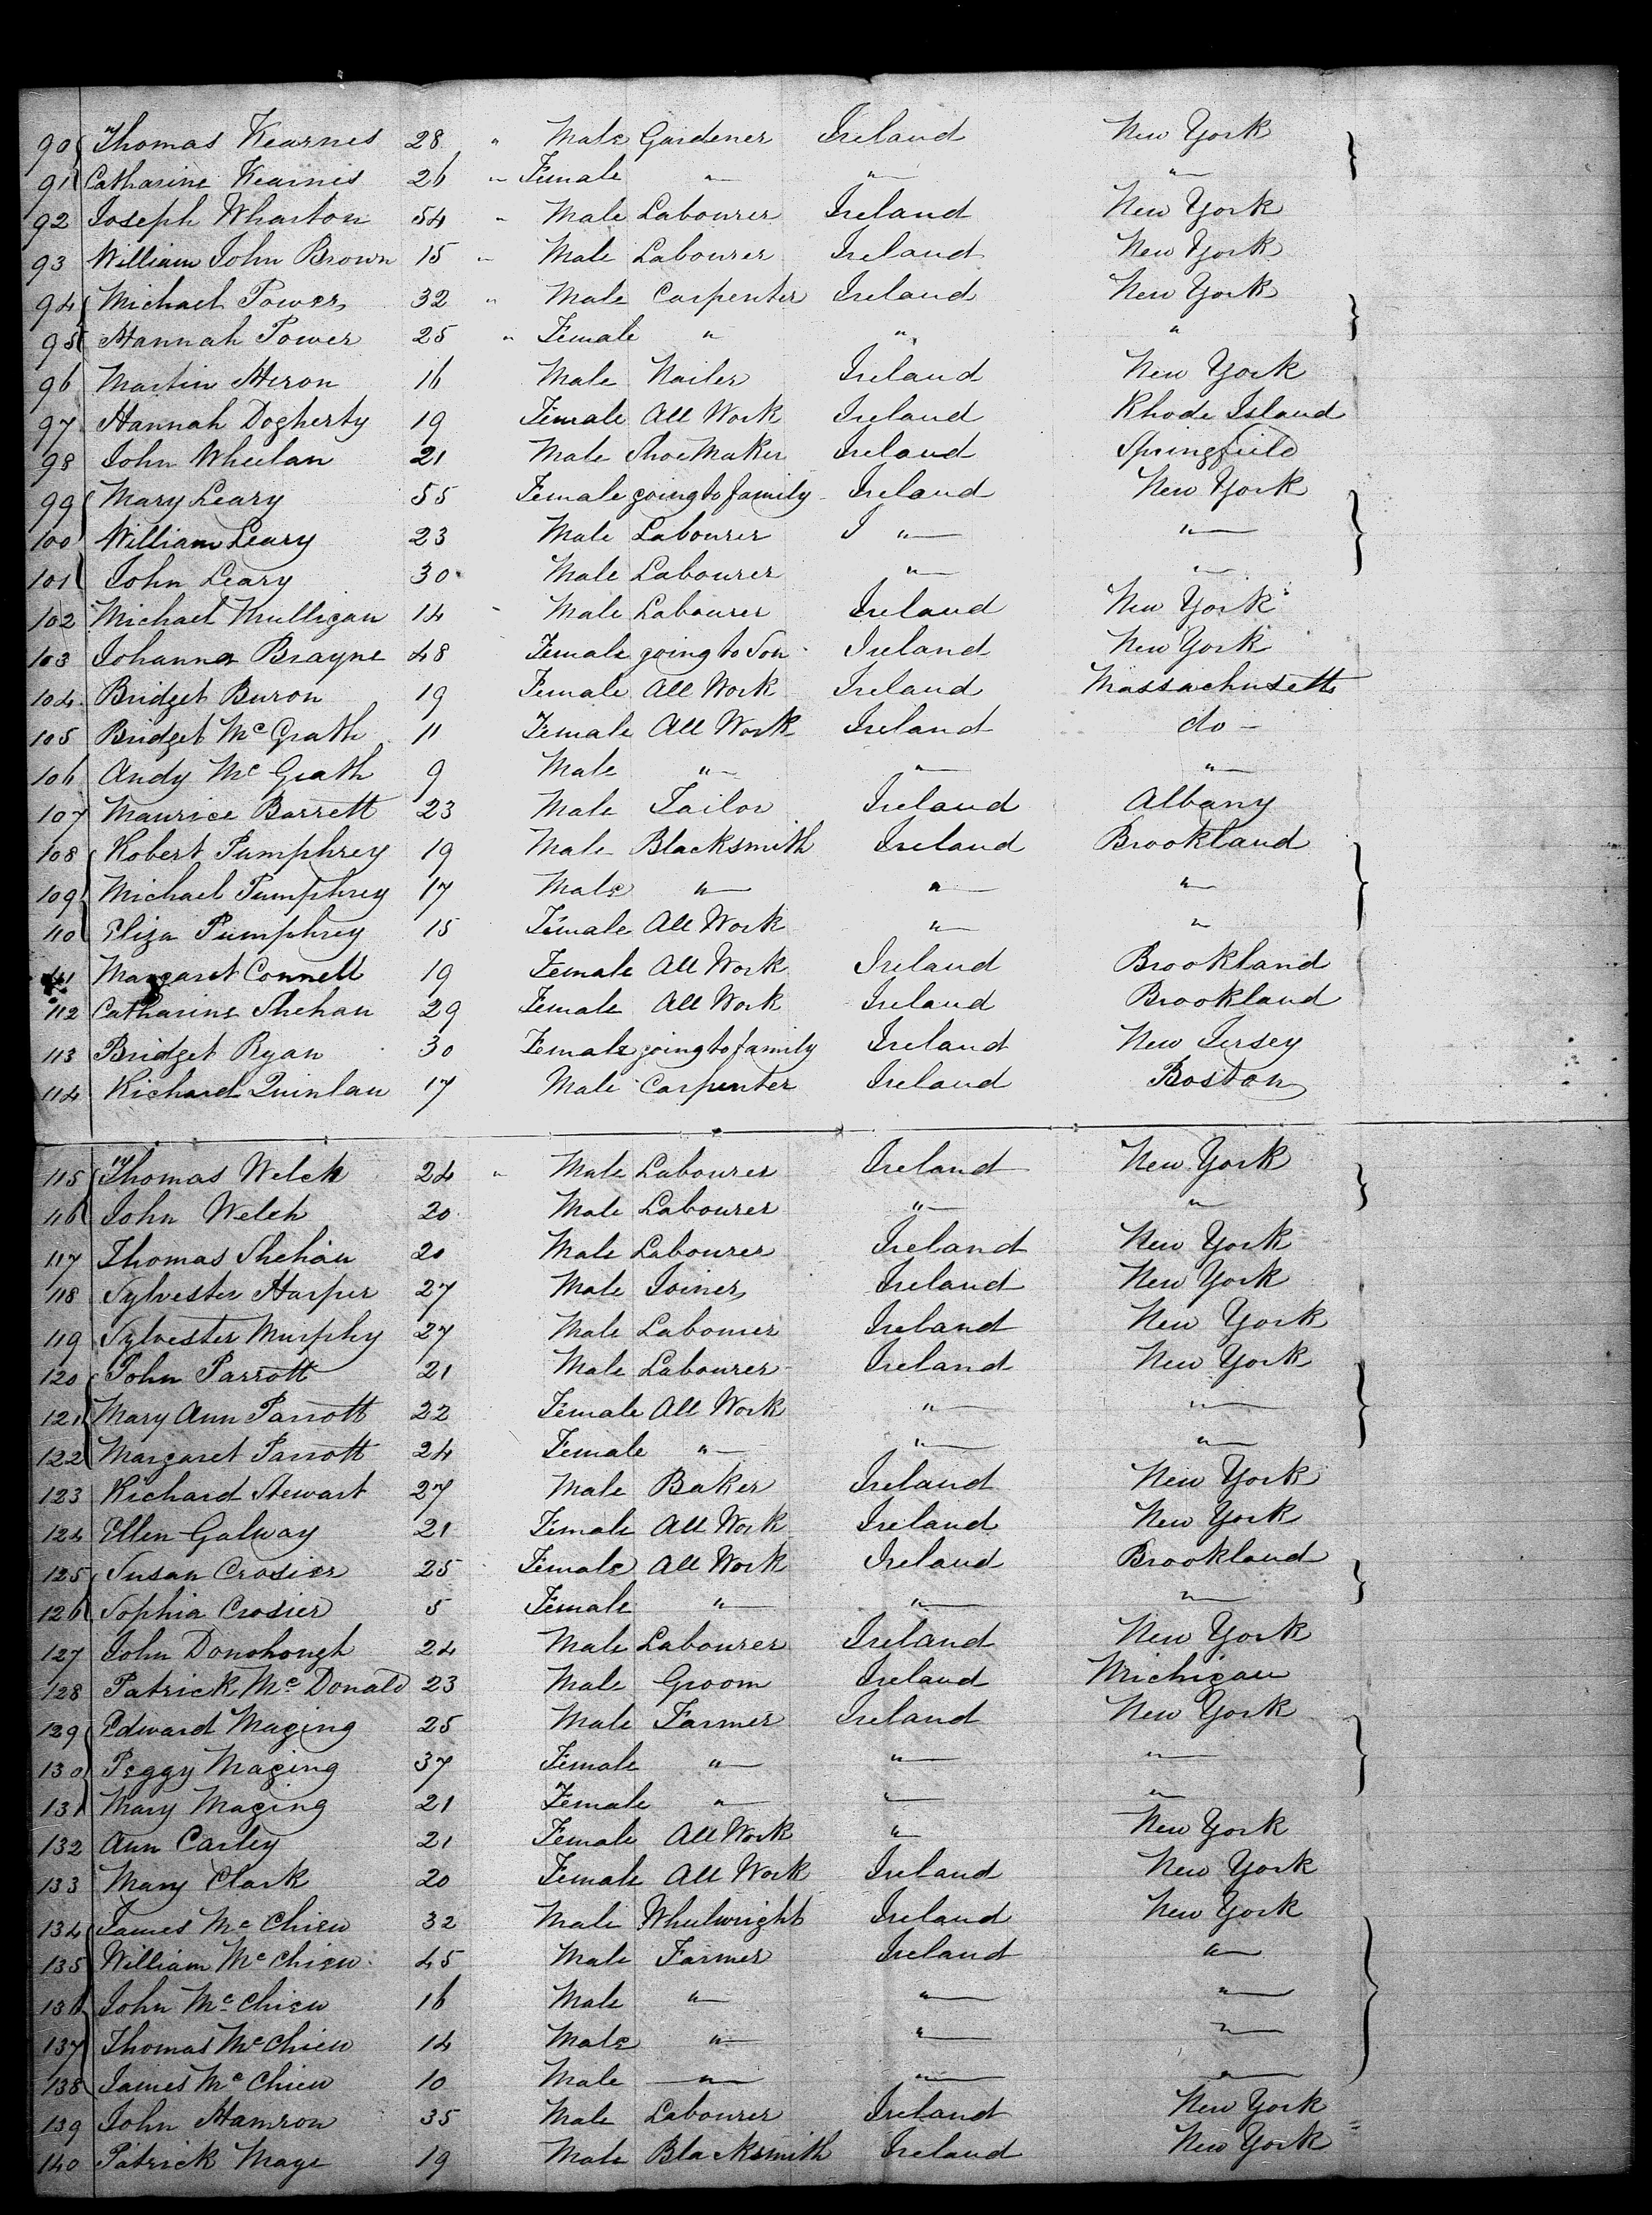 90 Thomas Kearnes 28 " Male Gardener Ireland New York
91 Catharine Kearnes 26 " Female " " "
92 Joseph Wharton 54 " Male Labourer Ireland New York
93 William John Brown 15 " Male Labourer Ireland New York
94 Michael Power 32 " Male Carpenter Ireland New York
95 Hannah Power 25 " Female " " "
96 Martin Heron 16 Male Nailer Ireland New York
97 Hannah Dogherty 19 Female All Work Ireland Rhode Island
98 John Wheelan 21 Male Shoe Maker Ireland Springfield
99 Mary Leary 55 Female going to family Ireland New York
100 William Leary 23 Male Labourer I " "
101 John Leary 30 Male Labourer " "
102 Michael Mulligan 14 " Male Labourer Ireland New York
103 Johanna Brayne 48 Female going to Son Ireland New York
104 Bridget Buron 19 Female All Work Ireland Massachusetts
105 Bridget McGrath 11 Female All Work Ireland do -
106 Andy McGrath 9 Male " " "
107 Maurice Barrett 23 Male Tailor Ireland Albany
108 Robert Pumphrey 19 Male Blacksmith Ireland Brookland
109 Michael Pumphrey 17 Male " " "
110 Eliza Pumphrey 15 Female All Work " "
111 Margaret Connell 19 Female All Work Ireland Brookland
112 Catharine Shehan 29 Female All Work Ireland Brookland
113 Bridget Ryan 30 Female going to family Ireland New Jersey
114 Richard Quinlan 17 Male Carpenter Ireland Boston
115 Thomas Welch 24 " Male Labourer Ireland New York
116 John Welch 20 Male Labourer " "
117 Thomas Shehan 20 Male Labourer Ireland New York
118 Sylvester Harper 27 Male Joiner Ireland New York
119 Sylvester Murphy 27 Male Labourer Ireland New York
120 John Parrott 21 Male Labourer Ireland New York
121 Mary Ann Parrott 22 Female All Work " "
122 Margaret Parrott 24 Female " " "
123 Richard Stewart 27 Male Baker Ireland New York
124 Ellen Galway 21 Female All Work Ireland New York
125 Susan Crosier 25 Female All Work Ireland Brookland
126 Sophia Crosier 5 Female " " "
127 John Donohough 24 Male Labourer Ireland New York
128 Patrick McDonald 23 Male Groom Ireland Michigan
129 Edward Maging 25 Male Farmer Ireland New York
130 Peggy Maging 37 Female " " "
131 Mary Maging 21 Female " " "
132 Ann Carley 21 Female All Work " New York
133 Mary Clark 20 Female All Work Ireland New York
134 James McChien 32 Male Wheelwright Ireland New York
135 William McChien 45 Male Farmer Ireland "
136 John McChien 16 Male " " "
137 Thomas McChien 14 Male " " "
138 James McChien 10 Male " " "
139 John Hamron 35 Male Labourer Ireland New York
140 Patrick Mage 19 Male Blacksmith Ireland New York